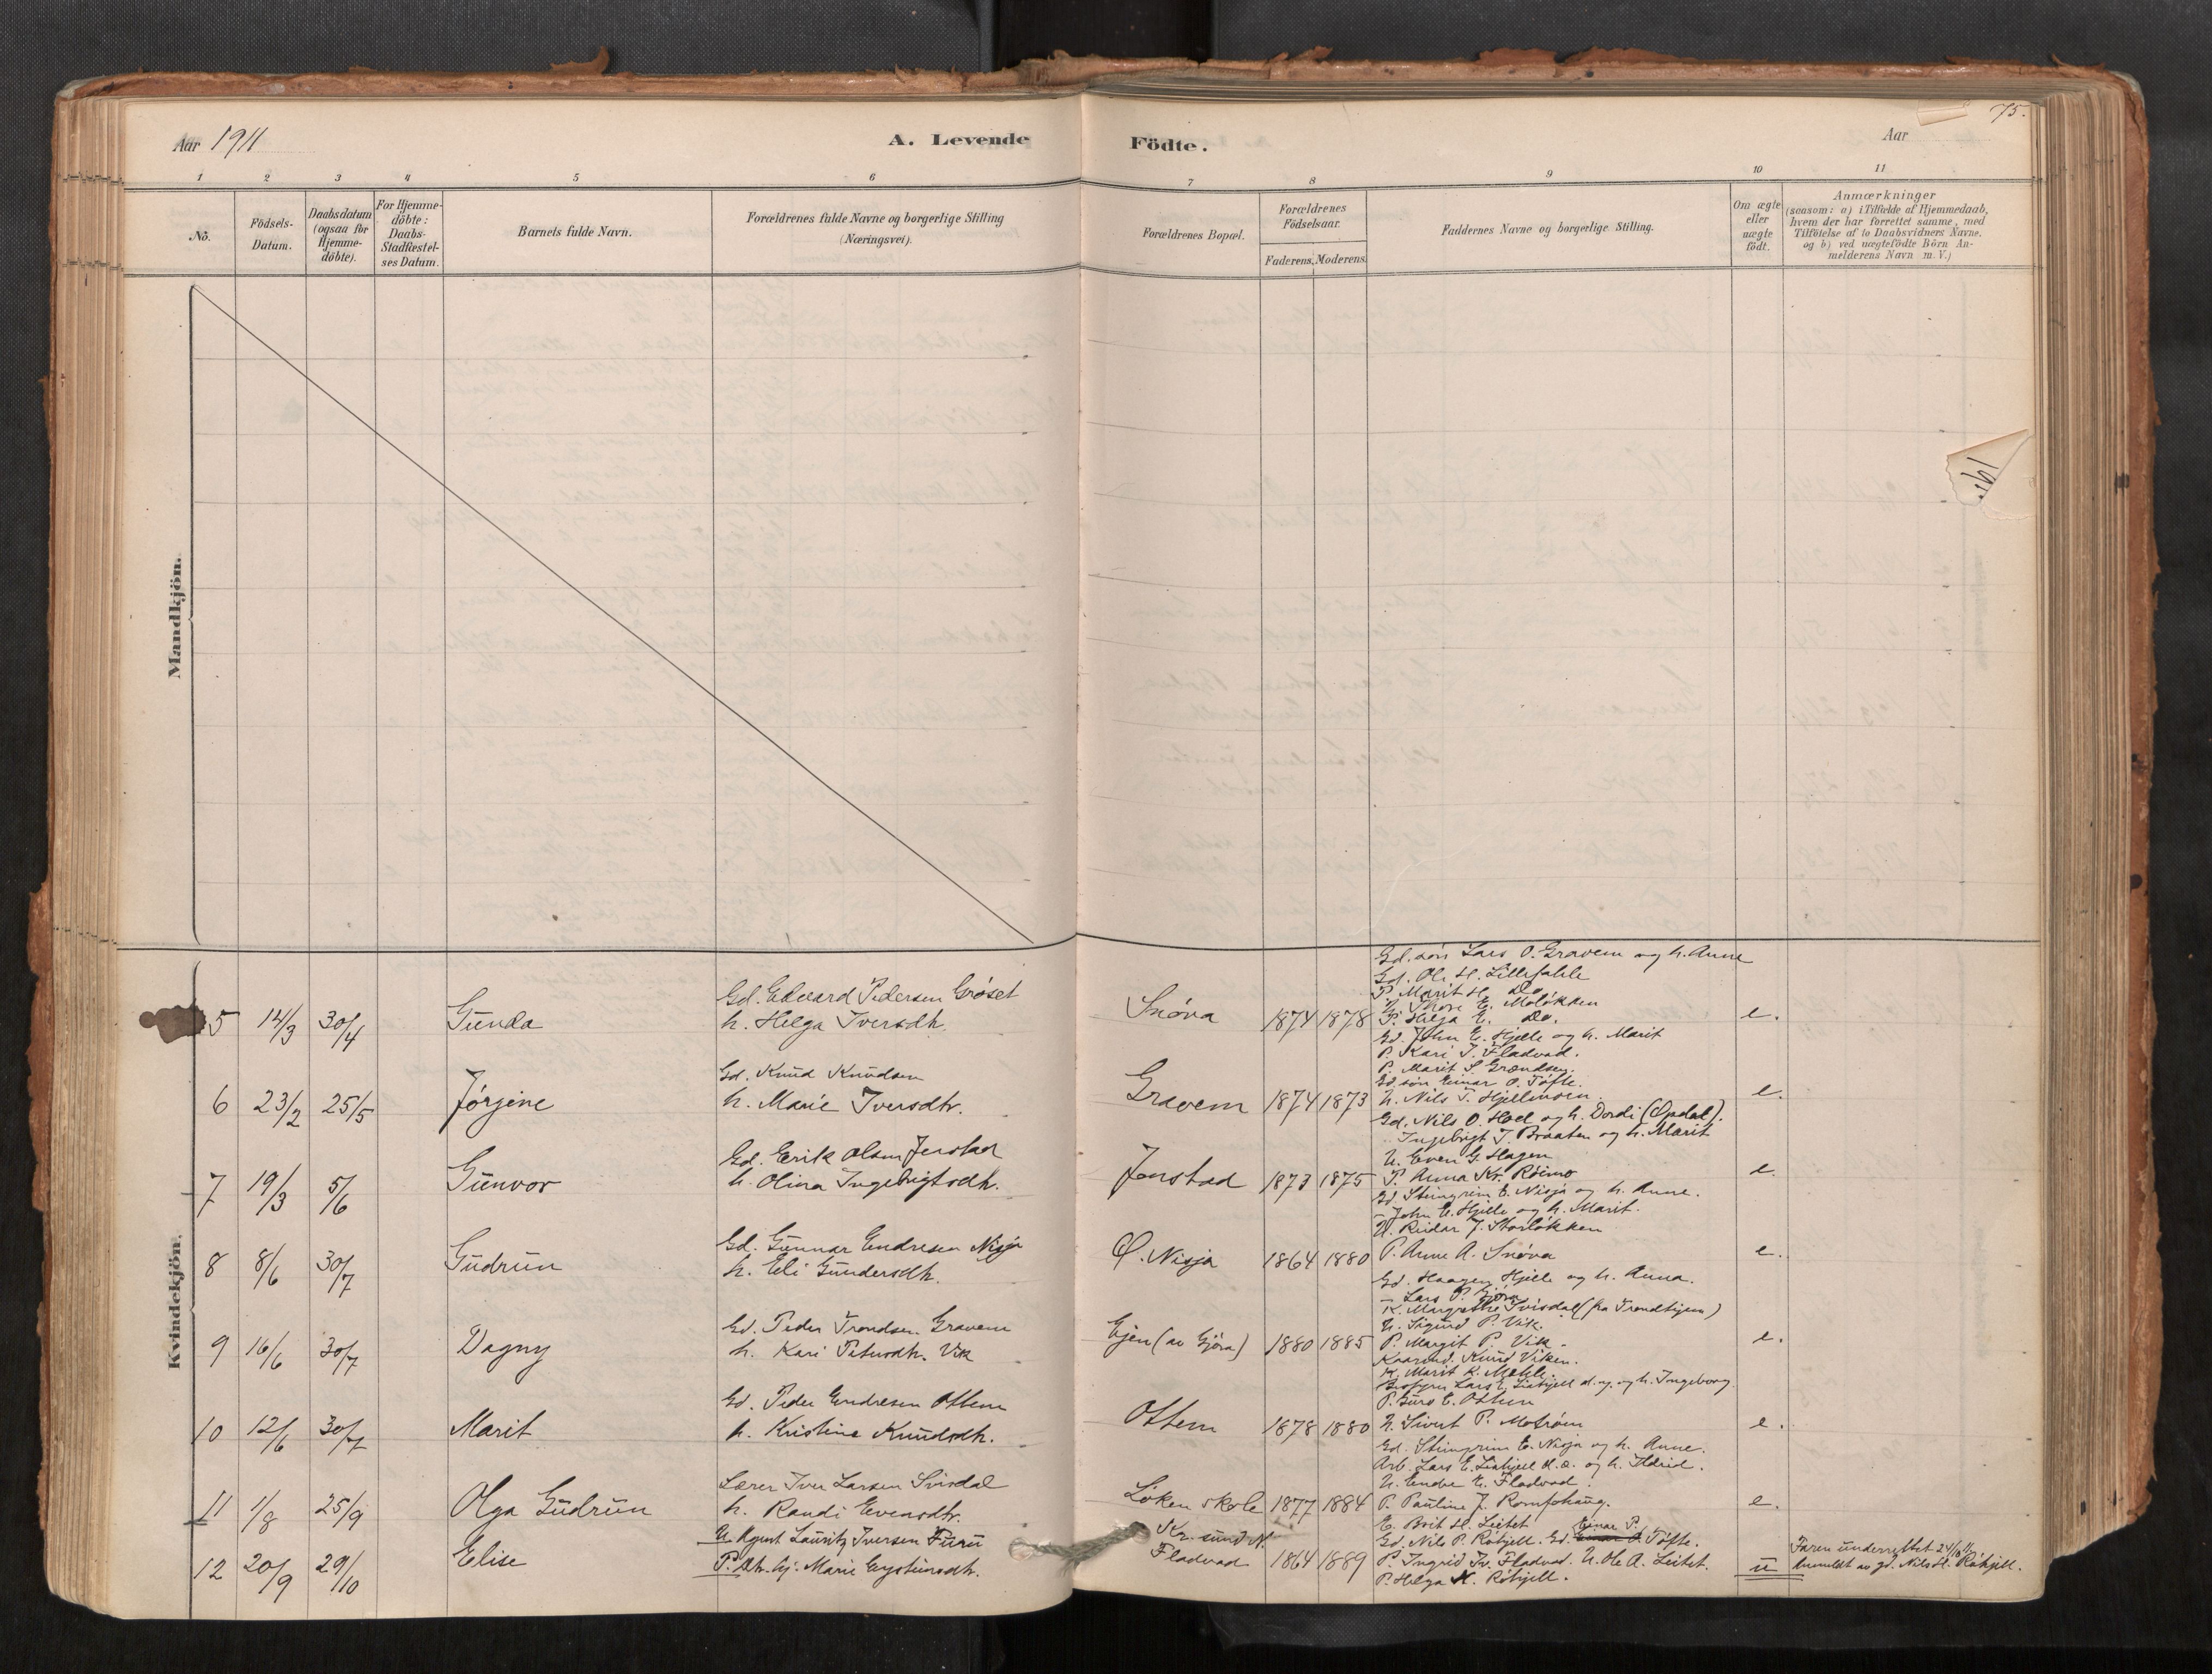 Aar 1911
A. Levende Födte.
Aar
75.
1 2 3 4 5 6 7 8 9 10 11
No.
Födsels-Datum.
Daabsdatum (ogsaa for Hjemme-döbte).
For Hjemme-döbte: Daabs-Stadfæstel-ses Datum.
Barnets fulde Navn.
Forældrenes fulde Navne og borgerlige Stilling (Næringsvei).
Forældrenes Bopæl.
Forældrenes Födselsaar.
Faderens. Moderens.
Faddernes Navne og borgerlige Stilling.
Om ægte eller uægte födt.
Anmærkninger
(saasom: a) i Tilfælde af Hjemmedaab,
hvem der har forrettet samme, med
Tilföielse af to Daabsvidners Navne.
og b) ved uægtefödte Börn An-
melderens Navn m.V.)
Mandkjön.
191
Kvindekjön.
5 14/3 30/4 Gunda
Gd. Edvard Pedersen Grøset
h. Helga Iversdtr.
Snøva 1874 1878
Gd. søn Lars O. Gravem og h. Anne
Gd. Ole H. Lillefahle
P. Marit H. Do
U. Thore E. Moløkken
P. Helga E. Do.
e.
6 23/2 25/5 Jørgine
Gd. Knud Knudsen
h. Marie Iversdtr.
Gravem 1874 1873
Gd. John E. Hjelle og h. Marit
P. Kari I. Fladvad.
P. Marit S. Grændsen.
Gd. søn Einar O. Tøfte.
U. Nils T. Hjellmoen.
e.
7 19/3 5/6 Gunvor
Gd. Erik Olsen Jenstad
h. Olina Ingebrigtsdtr.
Jenstad 1873 1875
Gd. Nils O. Hoel og h. Dordi (Opdal).
" Ingebrigt J. Braaten og h. Marit
U. Even G. Hagen
P. Anna Kr. Røimo
e.
8 8/6 30/7 Gudrun
Gd. Gunnar Endresen Nisja
h. Eli Gundersdtr.
Ø. Nisja 1864 1880
Gd. Steingrim E. Nisja og h. Anne.
– John E. Hjelle og h. Marit.
U. Reidar J. Storløkken
P. Anne A. Snøva
e.
9 16/6 30/7 Dagny
Gd. Peder Trondsen Gravem
h. Kari Petersdtr. Vik
Ejen (av Gjøra) 1880 1885
Gd. Haagen Hjelle og h. Anna.
– Lars P. Gjøra
K. Margrethe Svisdal (fra Trondhjem)
U. Sigurd P. Vik.
P. Margit P. Vik.
e.
10 12/6 30/7 Marit
Gd. Peder Endresen Ottem
h. Kristine Knudsdtr.
Ottem 1878 1880
Kaarmd. Knud Viken.
K. Marit K. Mehle.
Bestyrer Lars E. Liahjell d. y. og h. Ingeborg
P. Guro E. Ottem
U. Sivert P. Motrøen
e.
11 1/8 25/9 Olga Gudrun
Lærer Iver Larsen Svisdal
h. Randi Evensdtr.
Løken skole 1877 1884
Gd. Steingrim E. Nisja og h. Anne.
Arb. Lars E. Liahjell d. æ. og h. Ildrid.
U. Endre E. Fladvad.
P. Pauline J. Romfohaug.
e.
12 20/9 29/10 Elise
U. Agent Lauritz Iversen Furu
P. Dtr. hj. Marie Eysteinsdtr.
Kr.sund N.
Fladvad 1864 1889
E. Brit H. Leitet
Gd. Nils P. Røhjell. Gd. Einar P. Tøfte.
P. Ingrid Iv. Fladvad. U. Ole A. Leitet.
P. Helga N. Røhjell.
u
Faren underrettet 24/10 11.
Anmeldt av gd. Nils H. Røhjell.